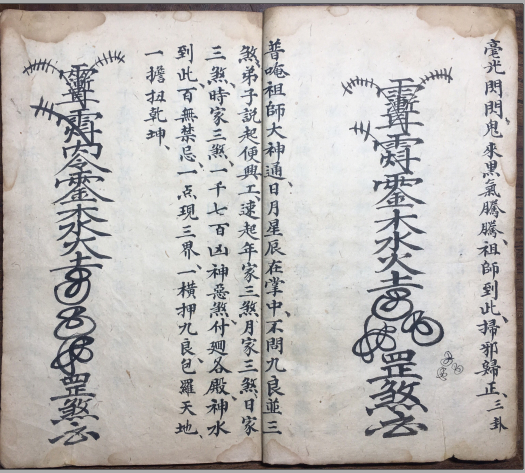 毫光閃閃鬼來黑氣騰騰祖師到此掃邪歸正三卦
金木水火土
罡煞
普唵祖師大神通日月星辰在掌中不問九良並三
煞弟子說起便興工速起年家三煞月家三煞日家
三煞時家三煞一千七百凶神惡煞付廻各殿神水
到此百無禁忌一点現三界一橫押九良包羅天地
一擔扭乾坤
木水火土
罡煞